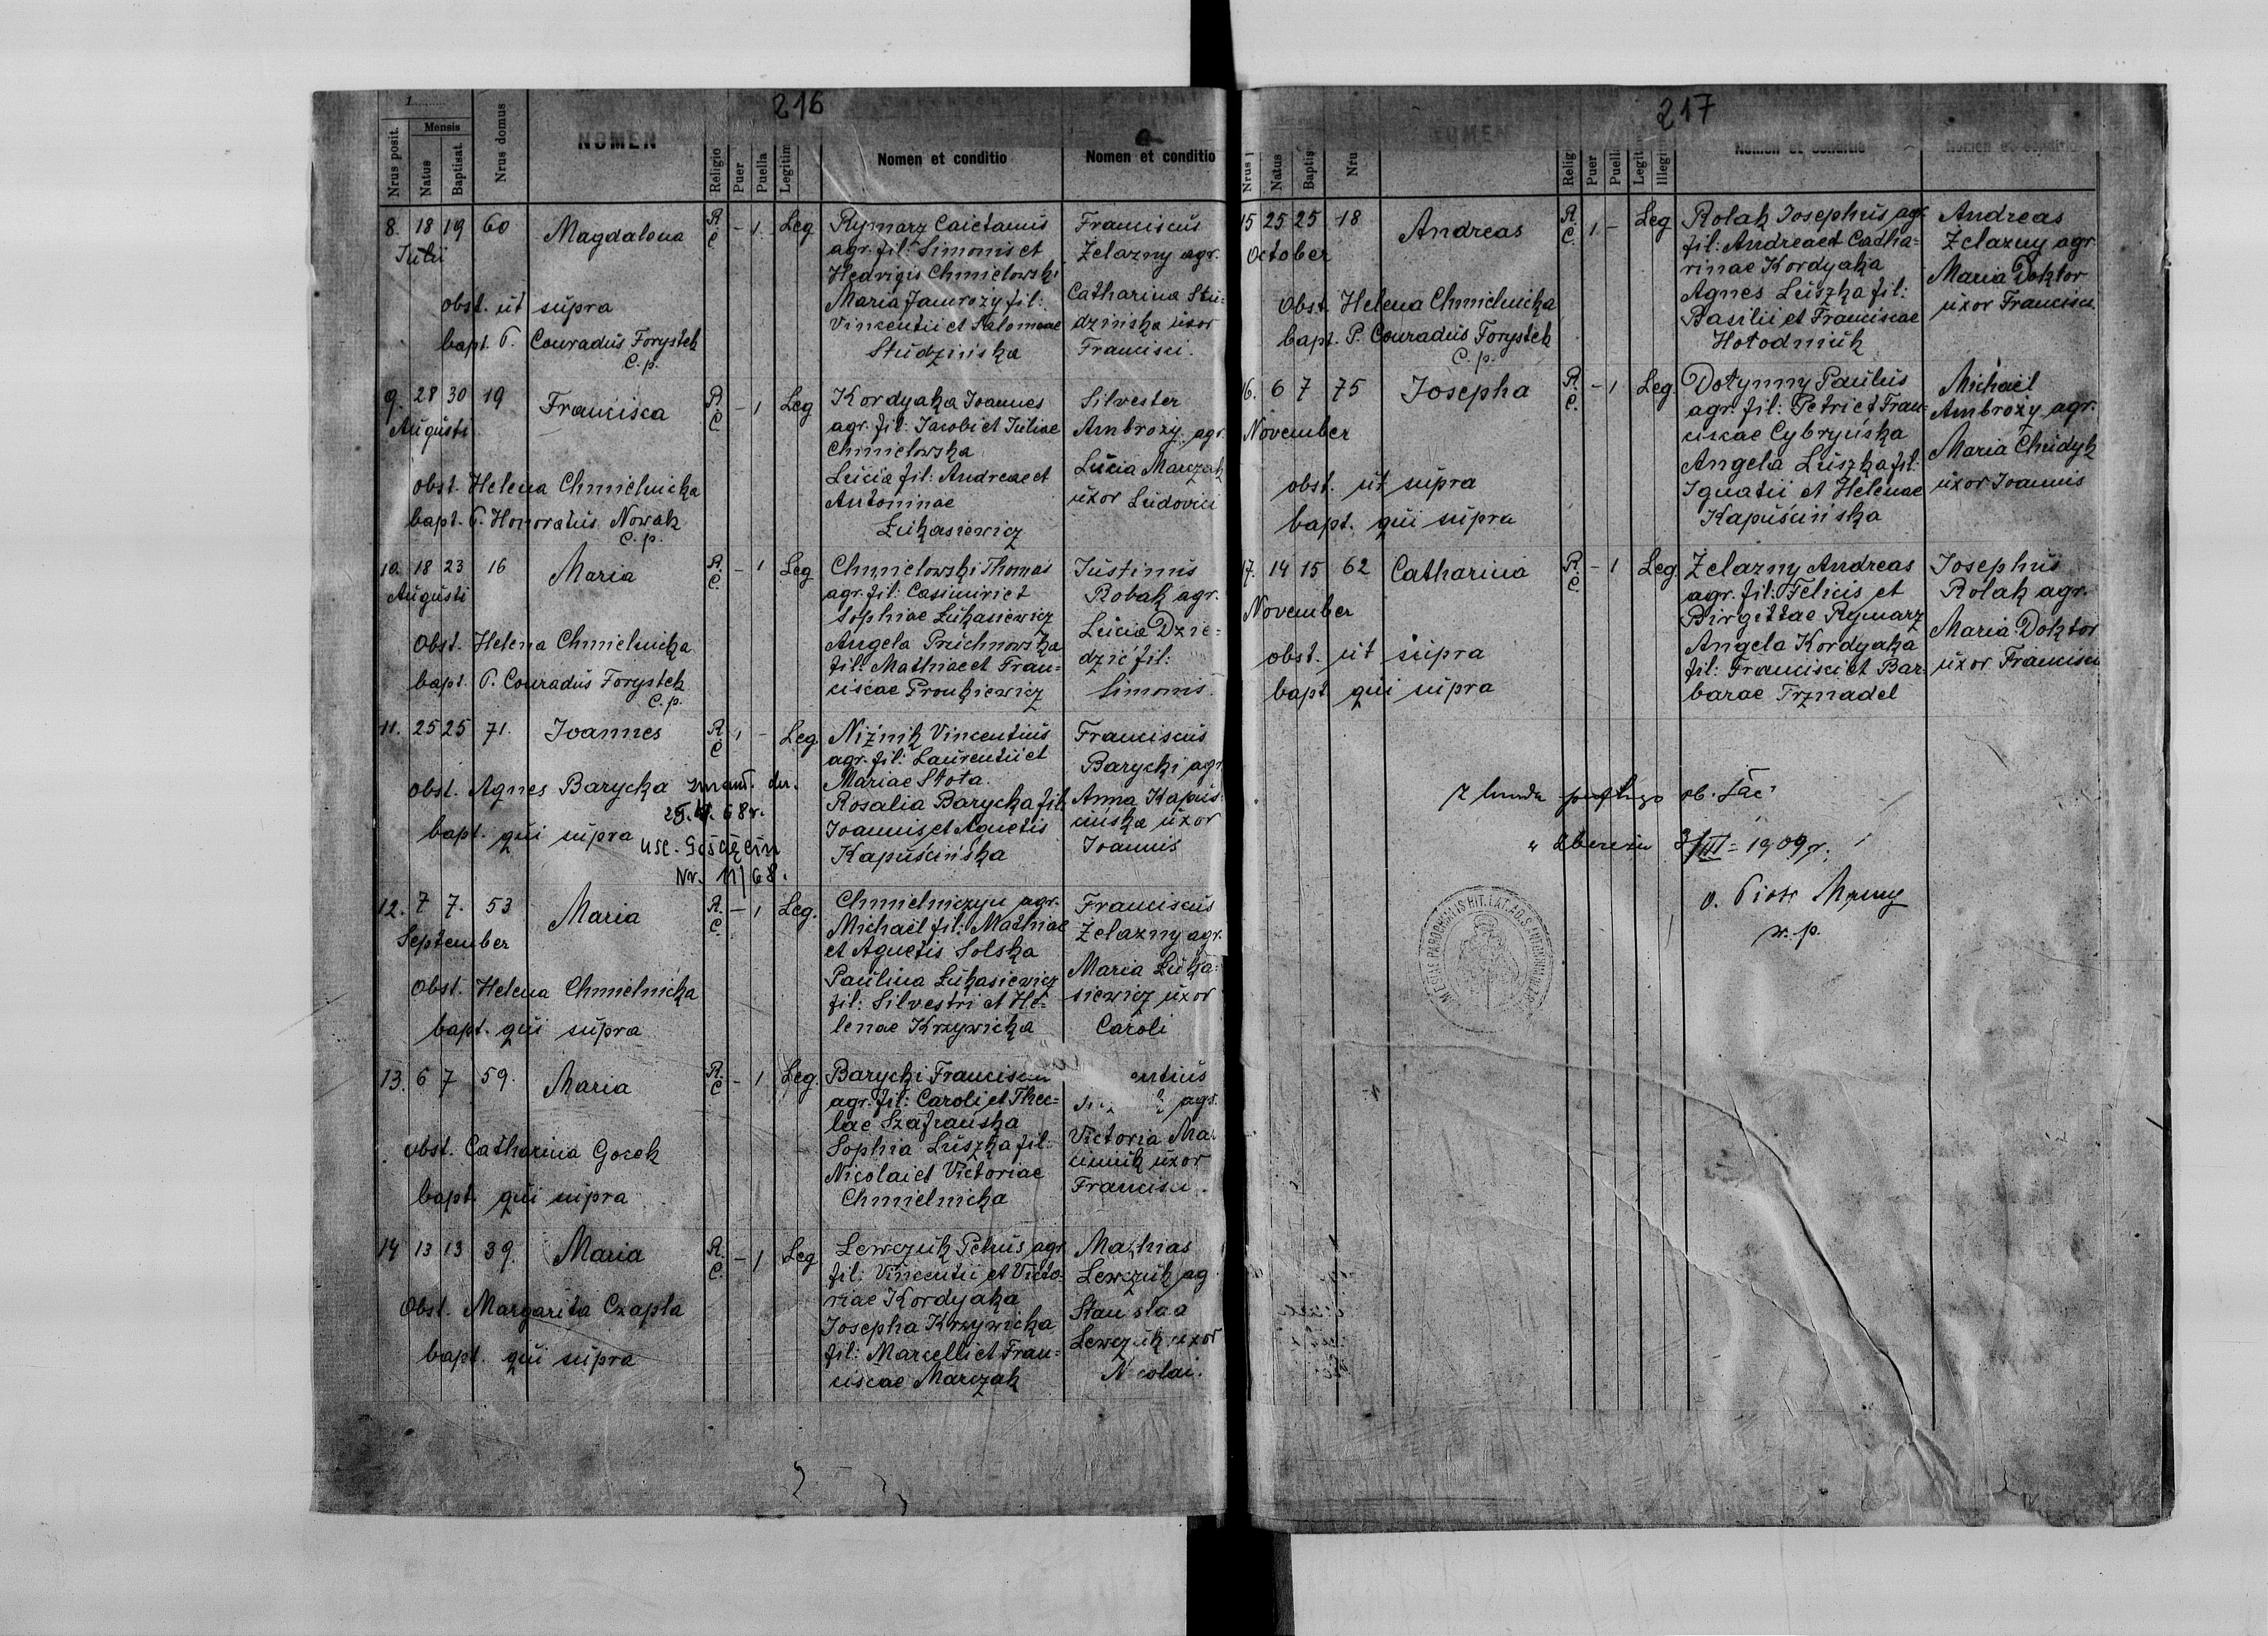 216
1
Nrus posit.
Mensis
Natus
Baptisat.
Nrus domus
NOMEN
Religio
Puer
Puella
Legitim
Nomen et conditio
Nomen et conditio
8. 18 19 60 Magdalena R. C. – 1 Leg
Julii
obst. ut supra
bapt. P. Conradus Forystek
C. p.
Rymarz Caietanus
agr. fil: Simonis et
Hedvigis Chmielowski
Maria Jamrozy fil:
Vincentii et Salomeae
Studzińska
Franciscus
Żelazny agr.
Catharina Stu=
dzińska uxor
Francisci.
9. 28 30 19 Francisca R. C. – 1 Leg
Augusti
obst. Helena Chmielnicka
bapt. P. Honoratus Nowak
C. p.
Kordyaka Joannes
agr. fil: Jacobi et Juliae
Chmielowska
Lucia fil: Andreae et
Antoninae
Łukasiewicz
Silvester
Ambroży agr.
Lucia Marczak
uxor Ludovici
10. 18 23 16 Maria R. C. – 1 Leg
Augusti
Obst. Helena Chmielnicka
bapt. P. Conradus Forystek
C. p.
Chmielowski Thomas
agr. fil: Casimiri et
Sophiae Łukasiewicz
Angela Pruchnowska
fil: Mathiae et Fran=
ciscae Pronkiewicz
Justinus
Robak agr.
Lucia Dzie=
dzic fil:
Simonis.
11. 25 25 71. Joannes R. C. 1 – Leg.
obst. Agnes Barycka zmarł. dn.
68r.
bapt. qui supra USC. Gościęcin
Nr. 11/68.
Niżnik Vincentius
agr. fil: Laurentii et
Mariae Stota.
Rosalia Barycka fil.
Joannis et Agnetis
Kapuścińska
Franciscus
Barycki agr.
Anna Kapuś=
cińska uxor
Joannis
12. 7 7. 53 Maria R. C. – 1 Leg.
September
Obst. Helena Chmielnicka
bapt. qui supra
Chmielniczyn agr.
Michael fil: Mathiae
et Agnetis Solska
Paulina Łukasiewicz
fil: Silvestri et He=
lenae Krzywicka
Franciscus
Żelazny agr.
Maria Łuka=
siewicz uxor
Caroli
13. 6 7 59. Maria R. C – 1 Leg.
obst. Catharina Gocek
bapt. qui supra
Barycki Franciscus
agr. fil: Caroli et Thec=
lae Szafrańska
Sophia Luszka fil:
Nicolai et Victoriae
Chmielnicka
agr.
Victoria Mar
uxor
Francisci.
14 13 13 39. Maria R. C. – 1 Leg
Obst. Margarita Czapla
bapt. qui supra
Lewczuk Petrus agr
fil: Vincentii et Victo=
riae Kordyaka
Josepha Krzywicka
fil: Marcelli et Fran=
ciscae Marczak
Mathias
Lewczuk ag
Lewczuk uxor
Nicolai.
217
Nrus
Natus
Baptis
Nru
NOMEN
Relig
Puer
Puella
Legiti
Illegi
Nomen et conditio
Nomen et conditio
15 25 25 18 Andreas R. C. 1 – Leg
October
Obst. Helena Chmielnicka
bapt. P. Conradus Forystek
C. p.
Rolak Josephus agr.
fil: Andreae et Catha=
rinae Kordyaka
Agnes Luszka fil:
Basilii et Franciscae
Hołodniuk
Andreas
Żelazny agr.
Maria Doktor
uxor Francisci.
16. 6 7 75 Josepha R. C. – 1 Leg.
November
obst. ut supra
bapt. qui supra
Dołynny Paulus
agr. fil: Petri et Fran=
ciscae Cybryńska
Angela Luszka fil:
Ignatii et Helenae
Kapuścińska
Michael
Ambroży agr.
Maria Chudyk
uxor Joannis
17. 14 15 62 Catharina R. C. – 1 Leg.
November
obst. ut supra
bapt qui supra
Żelazny Andreas
agr. fil: Felicis et
Birgittae Rymarz
Angela Kordyaka
fil: Francisci et Bar=
barae Trznadel
Josephus
Rolak agr.
Maria Doktor
uxor Francisci
3/III = 1909 r.
o. Piotr
w. p.